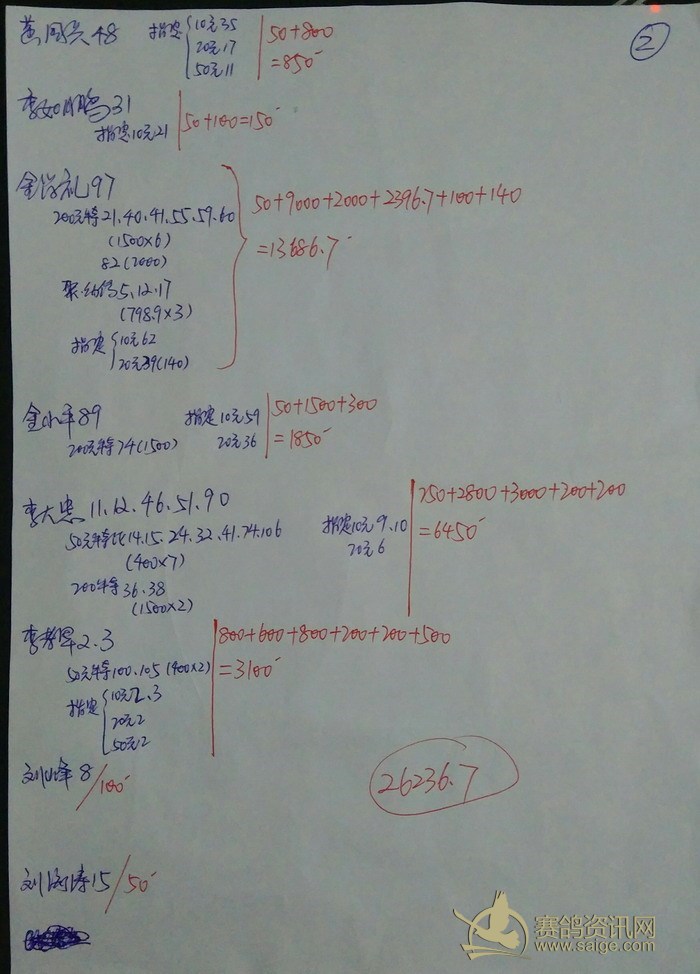 48 指定 10元35 50+800
20元17 =850
50元11
②
李 鹏31 50+100=150
指定10元21
金 礼97
200元特21.40.41.55.59.60 50+9000+2000+2396.7+100+140
(1500×6) =13686.7
82(2000)
5.12.17
(798.9×3)
指定 10元62
20元39(140)
金小平89 指定10元59 50+1500+300
200元特74(1500) 20元36 =1850
李大忠11.12.46.51.90 250+2800+3000+200+200
50元特比14.15.24.32.41.74.106 指定10元9.10 =6450
(400×7) 20元6
200特36.38
(1500×2)
李 军2.3 800+600+800+200+200+500
50元特100.105(400×2) =3100
指定 10元2.3
20元2
50元2
刘 峰8/100
26236.7
刘 涛15/50
赛鸽资讯网
www.saige.com